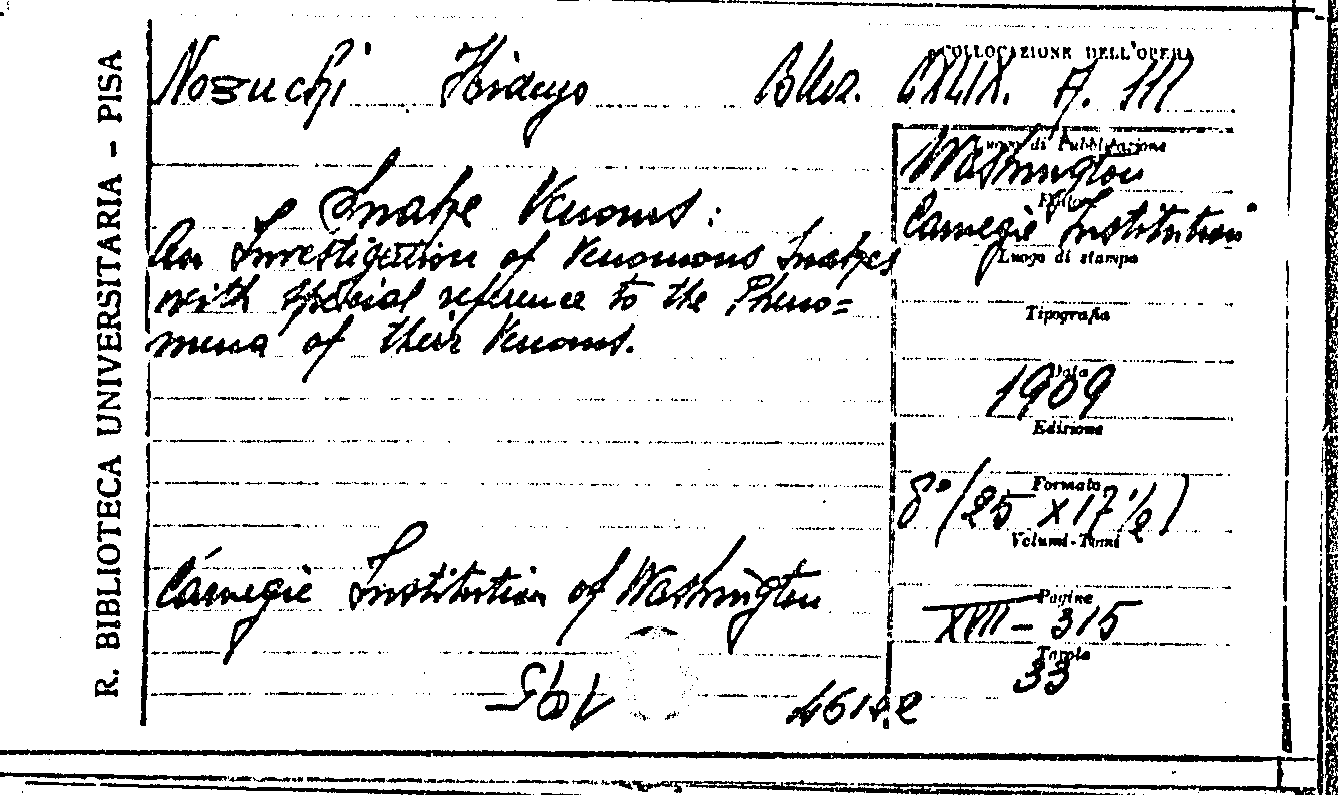 R. BIBLIOTECA UNIVERSITARIA - PISA
COLLOCAZIONE DELL'OPERA
Noguchi Hideyo CXLIX. A. 111
Snake Venoms:
An Investigation of Venomous Snakes
with special reference to the Pheno=
mena of their Venoms.
Carnegie Institution of Washington
Luogo di Pubblicazione
Washington
Editore
Carnegie Institution
Luogo di stampa
Tipografia
Data
1909
Edizione
Formato
8° (25 x 17 1/2)
Volumi-Tomi
Pagine
XVII - 315
Tavole
33